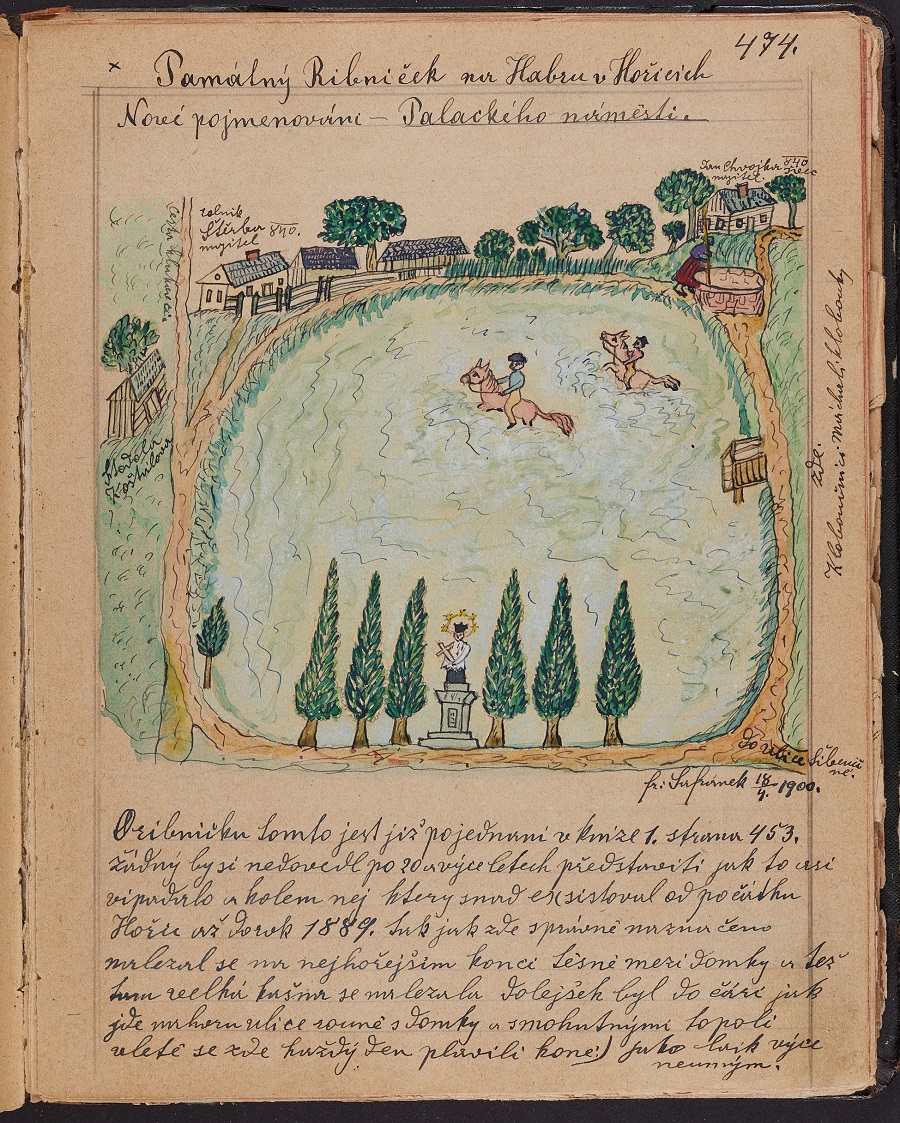 474.
× Památný Ribniček na Habru v Hořicích
Nové pojmenování – Palackého náměstí.
Jan Chvojka 840
majitel.
rolník
Štěrba 840.
majitel
cesta
Stodola
Košťálova
Kloboučníci máchali klobouky
zde.
do ulice Šibeničné.
fr. Šafránek 18/4. 1900.
O ribníčku tomto jest již pojednaní v knize 1. strana 453.
žádný by si nedovedl po 20 a výce letech představiti jak to asi
vipadalo a kolem nej ktery snad exsistoval od počátku
Hořic až do rok 1889. tak jak zde správně naznačeno
nalezal se na nejhořejším konci těsně mezi domky a též
tam velká kašna se nalezala dolejšek byl do čári jak
jde nahoru ulice rouně s domky a smohutnými topoli
vletě se zde každý den plavili koně:) jako laik výce
neumým.